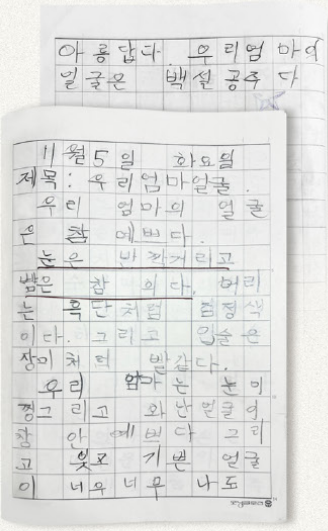 아름답다. 우리엄마의
얼굴은 백설공주다
11월5일 화요일
제목: 우리엄마얼굴.
우리 엄마의 얼굴
은 참 예쁘다.
눈은 반짝거리고
밤은 참 희다. 머리
는 흑단처럼 검정색
이다. 그리고 입술은
장미처럼 빨갛다.
우리 엄마는 눈이
찡그리고 화난얼굴이
참 안 예쁘다 그리
고 웃고 기쁜 얼굴
이 너무너무 나도